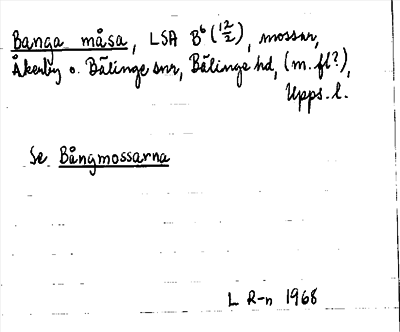 Banga måsa, LSA B⁶ (12/2), mossar,
Åkerby o. Bälinge snr, Bälinge hd, (m. fl?),
Upps. l.
Se Bångmossarna
L R-n 1968